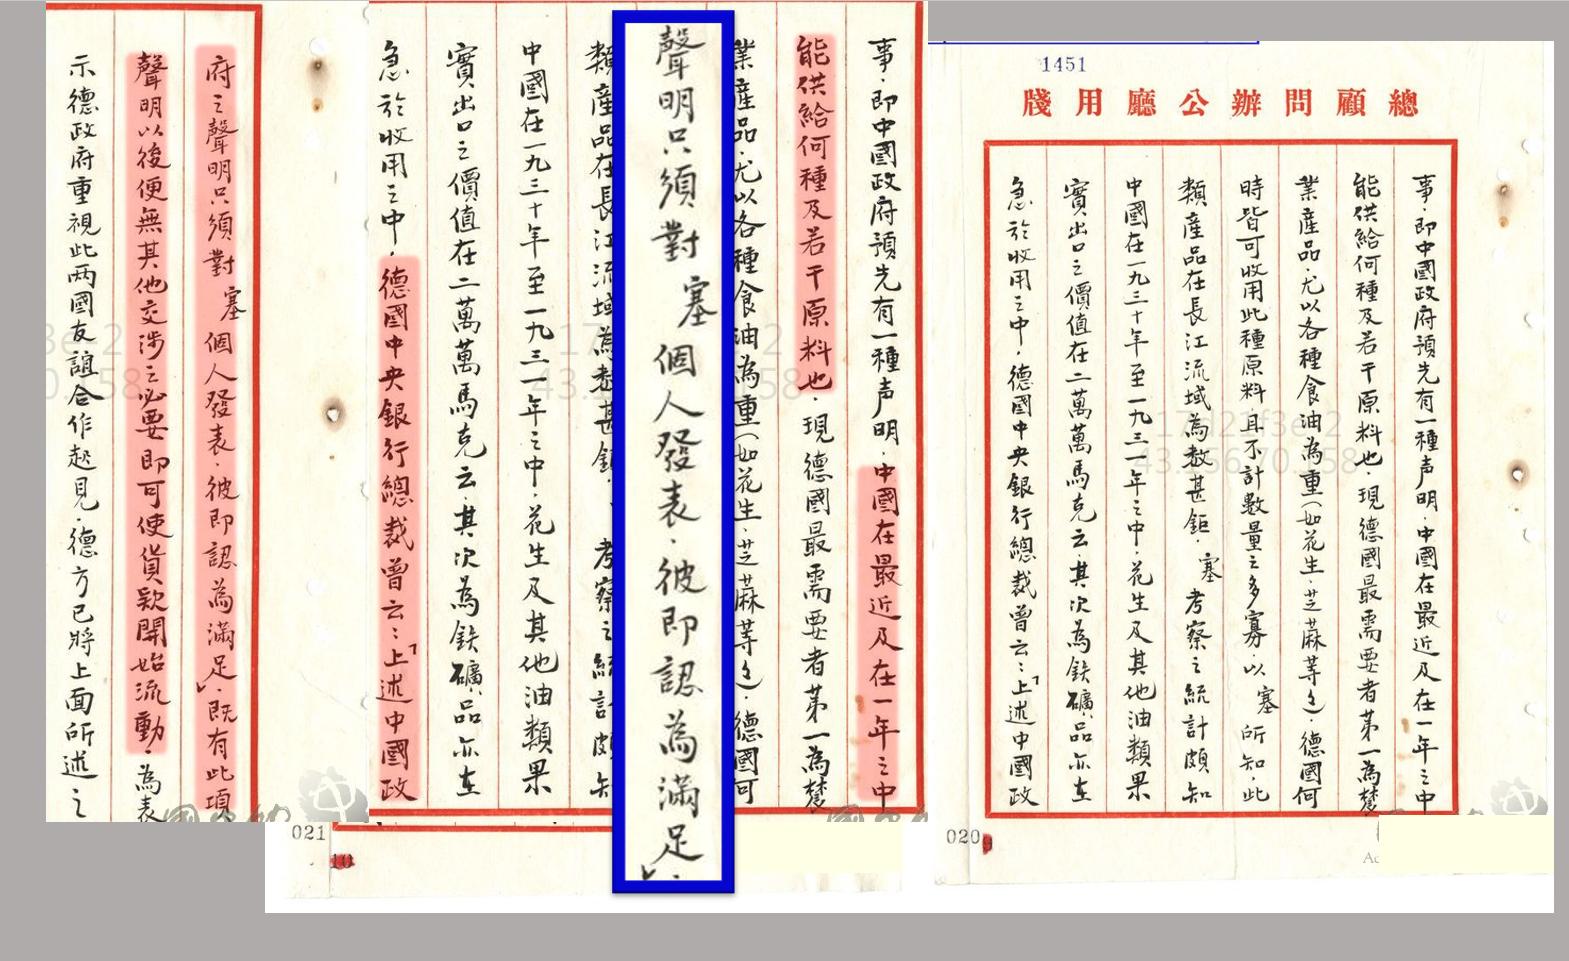 1451
總顧問辦公廳用牋
事.即中國政府預先有一種声明.中國在最近及在一年之中
能供給何種及若干原料也.現德國最需要者第一為
業產品.尤以各種食油為重(如花生.芝蔴等).德國何
時皆可收用此種原料且不計數量之多寡以塞所知.此
類產品在長江流域為數甚鉅.塞考察之統計頗知
中國在一九三十年至一九三一年之中.花生及其他油類果
實出口之價值在二萬萬馬克云.其次為鉄礦.品亦在
急於收用之中.德國中央銀行總裁曾云:「上述中國政
020
事.即中國政府預先有一種声明.中國在最近及在一年之中
能供給何種及若干原料也.現德國最需要者第一為
業產品.尤以各種食油為重(如花生.芝蔴等).德國可
聲明只須對塞個人發表.彼即認為滿足」.
類產品在長江流域為數甚鉅.考察之統計頗知
中國在一九三十年至一九三一年之中.花生及其他油類果
實出口之價值在二萬萬馬克云.其次為鉄礦.品亦在
急於收用之中.德國中央銀行總裁曾云:「上述中國政
021
10
府之聲明只須對塞個人發表.彼即認為滿足」.既有此項
聲明以後便無其他交涉之必要即可使貨款開始流動.為表
示德政府重視此两國友誼合作起見.德方已將上面所述之